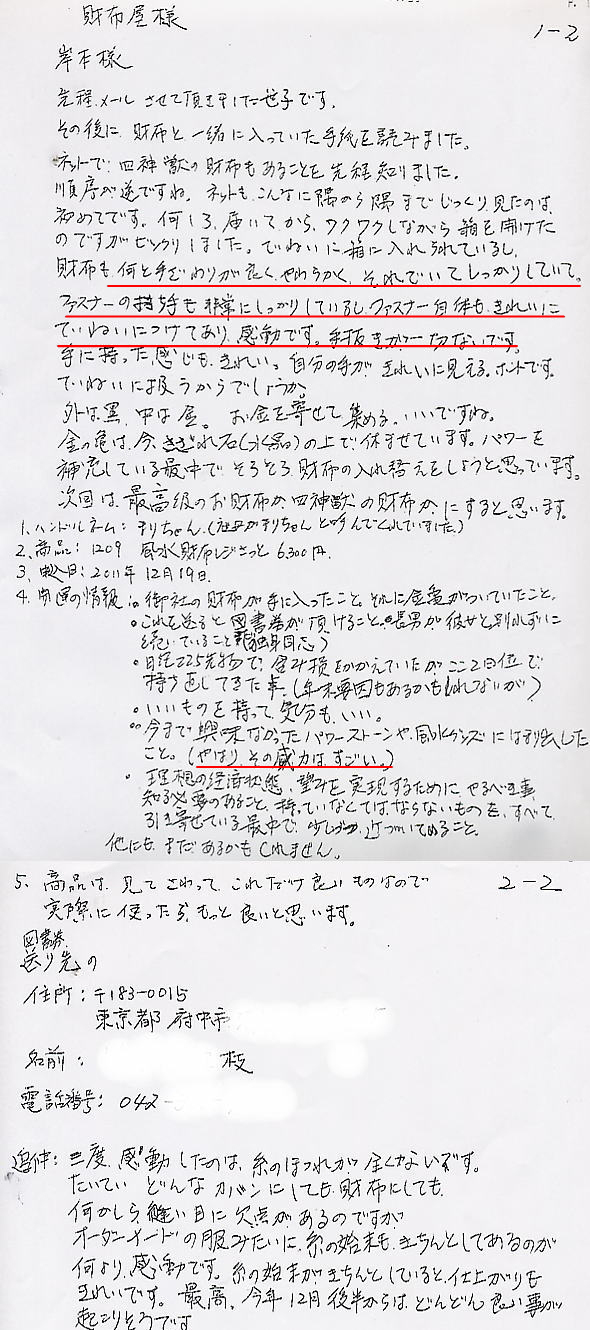 財布屋様
1-2
岸本様
先程、メールさせて頂きました世子です。
その後に、財布と一緒に入っていた手紙を読みました。
ネットで、四神獣の財布もあることを先程知りました。
順序が逆ですね。ネットも、こんなに隅から隅までじっくり見たのは、
初めてです。何しろ、届いてから、ワクワクしながら箱を開けた
のですがビックリしました。ていねいに箱に入れられているし、
財布も、何と手ざわりが良く、やわらかく、それでいてしっかりしていて。
ファスナーの持ち手も非常にしっかりしているし、ファスナー自体も、きれいに
ていねいにつけてあり、感動です。手抜きが一切ないです。
手に持った感じも、きれい。自分の手が、きれいに見える。ホントです。
ていねいに扱うからでしょうか。
外は黒、中は金。お金を寄せて集める。いいですね。
金の亀は、今、さざれ石(水晶)の上で休ませています。パワーを
補充している最中で、そろそろ財布の入れ替えをしようと思っています。
次回は、最高級のお財布か四神獣の財布か、にすると思います。
1、ハンドルネーム：まりちゃん、(祖母がまりちゃんと呼んでくれていました。)
2、商品：1209 風水財布レジさっと 6,300円、
3、購入日：2011年12月19日、
4、開運の情報：。御社の財布が手に入ったこと。それに金亀がついていたこと。
。これを送ると図書券が頂けること。。長男が彼女と別れずに
続いていること(独身同志)
。日経225先物で、含み損をかかえていたがここ2日位で、
持ち直してきた事、(年末要因もあるかもしれないが)
。いいものを持って、気分も、いい。
。今まで興味なかったパワーストーンや、風水グッズにはまり出した
こと。(やはり、その威力は、すごい。)
。理想の経済状態、望みを実現するために、やるべき事、
知る必要のあること、持っていなくてはならないものを、すべて、
引き寄せている最中で、少しずつ、近づいてゆること。
他にも、まだあるかもしれません。
5、商品は、見て、さわって、これだけ良いものなので
2-2
実際に使ったら、もっと良いと思います。
図書券
送り先の
住所：〒183-0015
東京都府中市
名前：
枝
電話番号：042-
追伸：三度、感動したのは、糸のほつれが全くないです。
たいてい どんなカバンにしても、財布にしても、
何かしら、縫い目に欠点があるのですが
オーダーメードの服みたいに、糸の始末も、きちんとしてあるのが
何より、感動です。糸の始末がきちんとしていると、仕上がりも
きれいです。最高、今年12月後半からは、どんどん良い事が
起こりそうです